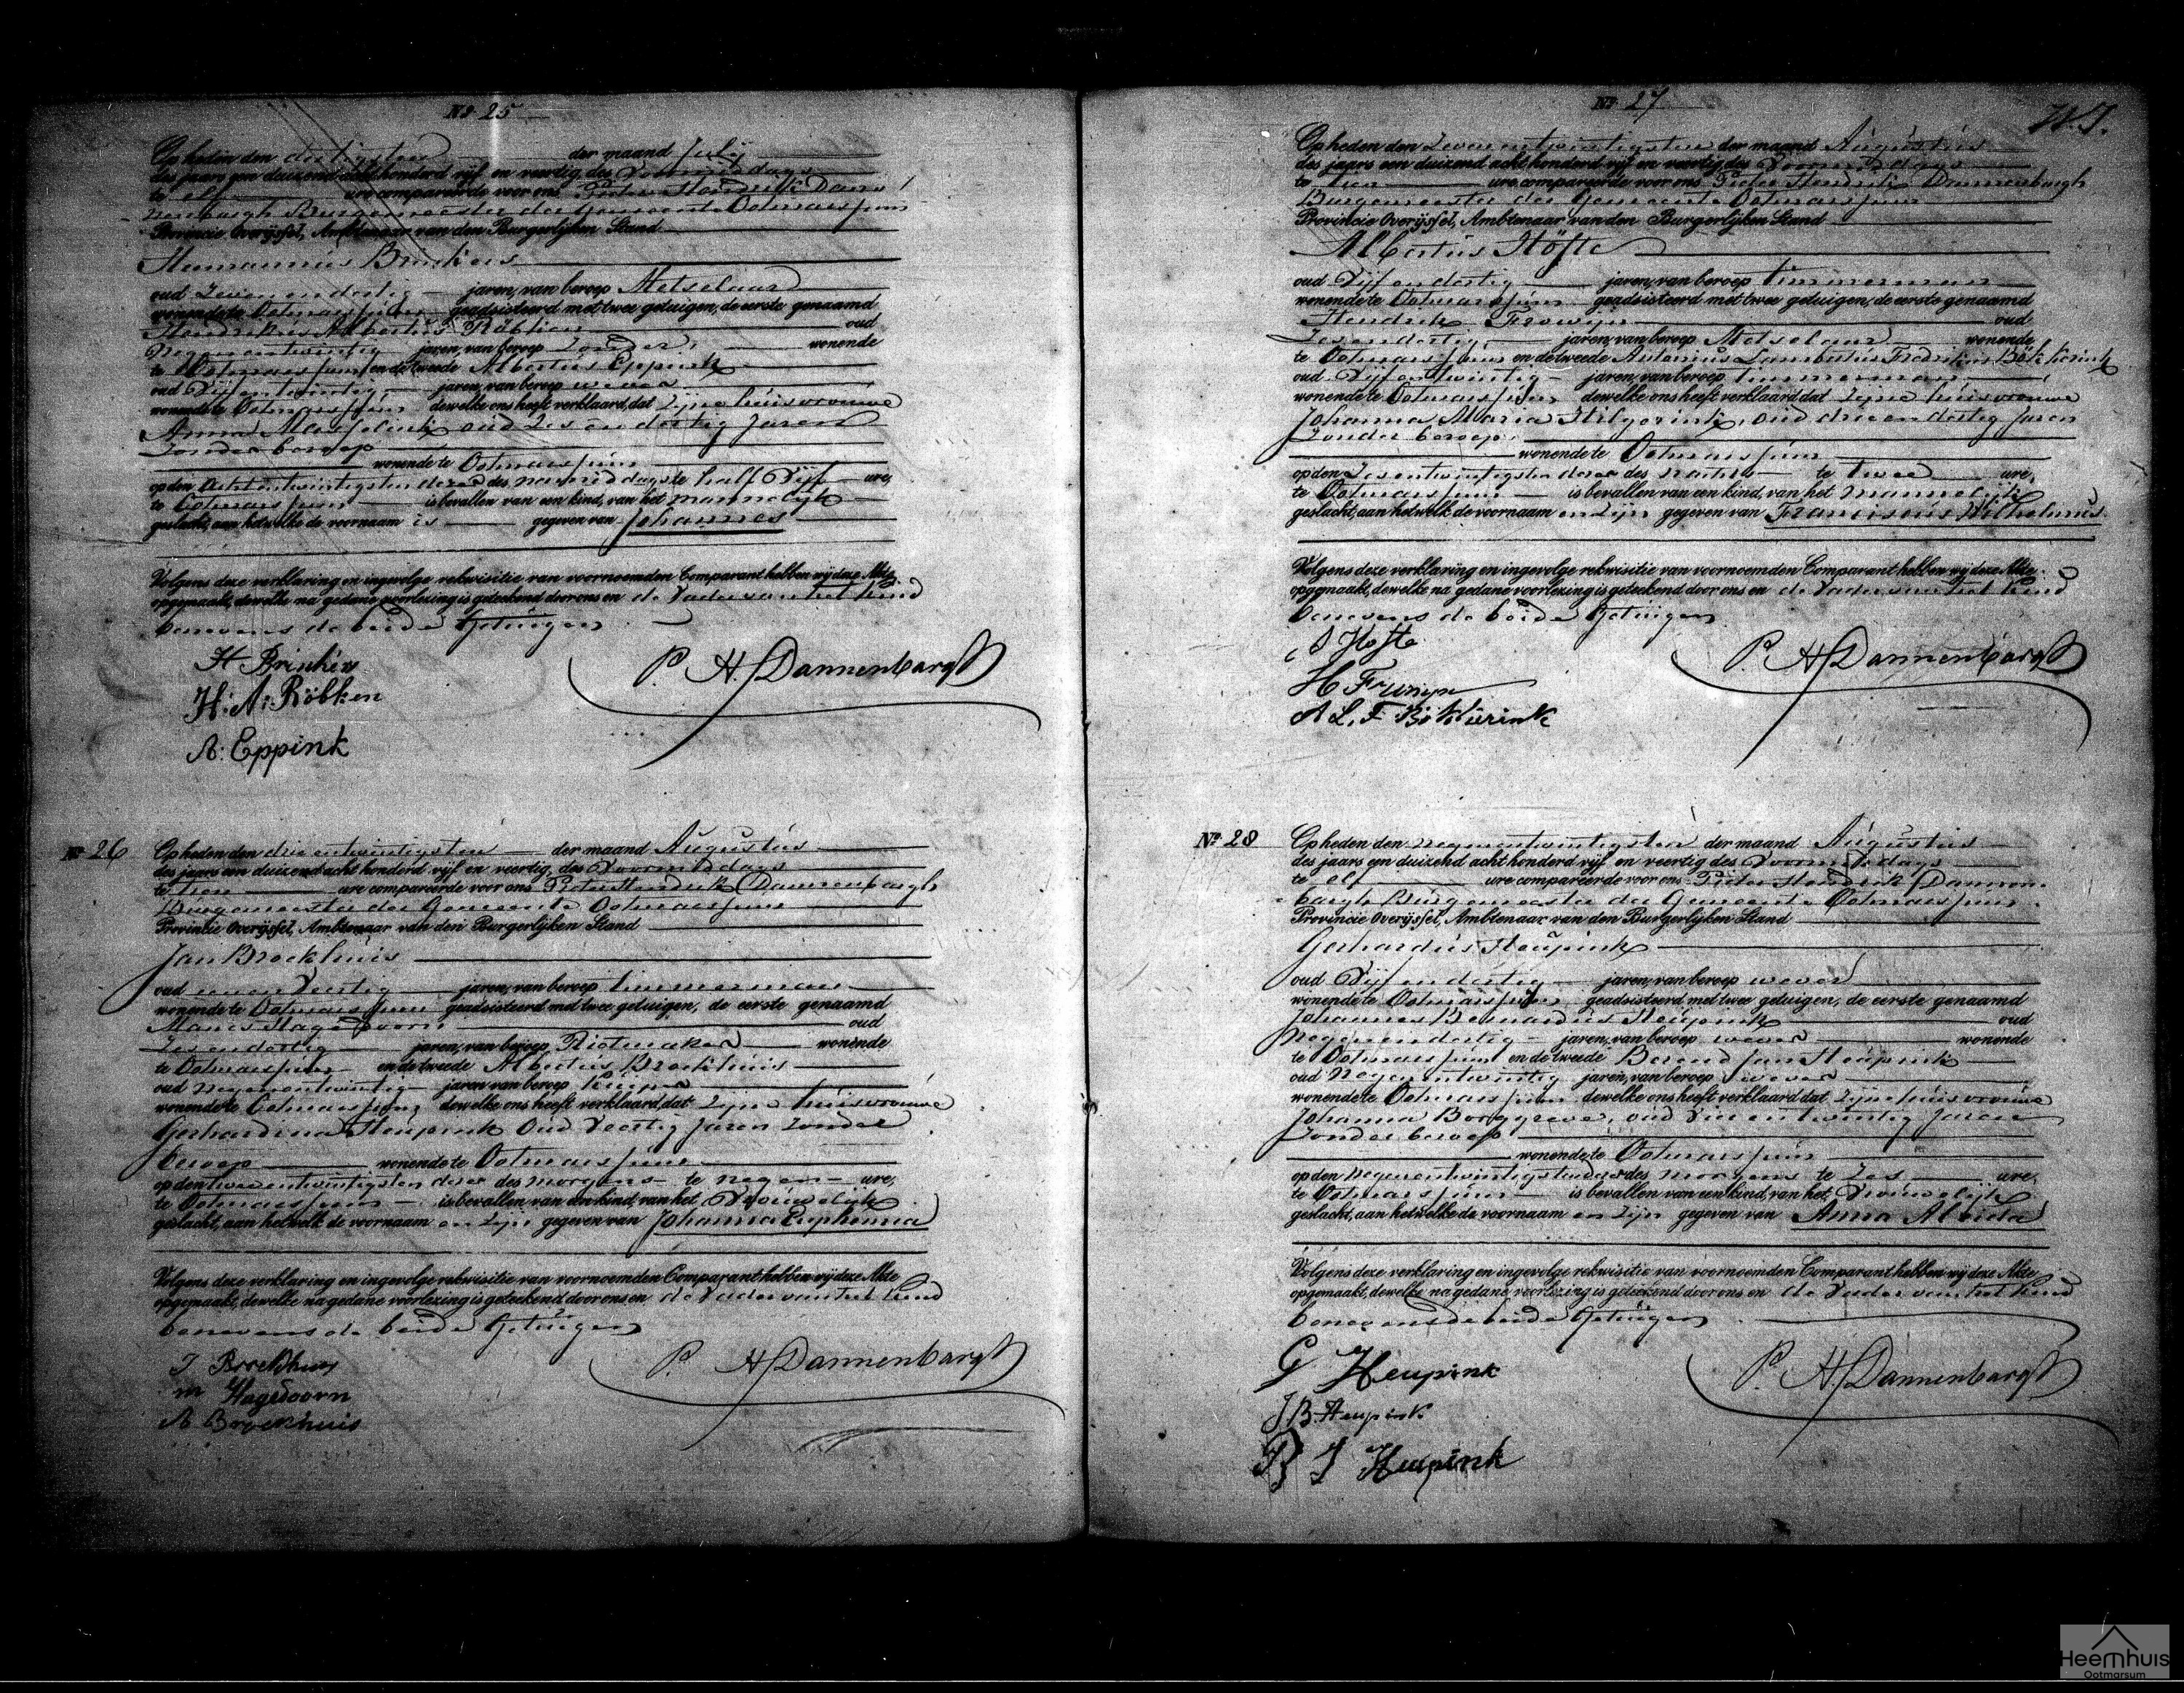 No 25
Op heden den dertigsten der maand July
des jaars een duizend acht honderd vijf en veertig, des Voormiddags
te elf ure compareerde voor ons Pieter Hendrik Dann
nenbargh Burgemeester der Gemeente Ootmarssum
Provincie Overijssel, Ambtenaar van den Burgerlijken Stand
Hermannus Brinkers
oud Zeven en dertig jaren, van beroep Metselaar
wonende te Ootmarssum geadsisteerd met twee getuigen, de eerste genaamd
Hendrikus Albertus Röbken oud
Negenentwintig jaren, van beroep Zonder wonende
te Ootmarssum en de tweede Albertus Eppink
oud Vijfentwintig jaren, van beroep wever
wonende te Ootmarssum dewelke ons heeft verklaard, dat Zijne huisvrouwe
Anna oud Zes en dertig Jaren
Zonder beroep
wonende te Ootmarssum
op den Achtentwintigsten dezer des namiddags te half Vijf ure,
te Ootmarssum is bevallen van een kind, van het mannelijk
geslacht, aan hetwelke de voornaam is gegeven van Johannes
Volgens deze verklaring en ingevolge rekwisitie van voornoemden Comparant hebben wij deze Akte
opgemaakt, dewelke na gedane voorlezing is geteekend door ons en de Vader van het Kind
benevens de beide Getuigen
H Brinkers
H: A: Röbken
A: Eppink
P. H. Dannenbargh
No 26
Op heden den drie entwintigsten der maand Augustus
des jaars een duizend acht honderd vijf en veertig, des Voormiddags
te tien ure compareerde voor ons Pieter Hendrik Dannenbargh
Burgemeester der Gemeente Ootmarssum
Provincie Overijssel, Ambtenaar van den Burgerlijken Stand
Jan Broekhuis
oud een en Veertig jaren, van beroep timmerman
wonende te Ootmarssum geadsisteerd met twee getuigen, de eerste genaamd
Manes Hagedoorn oud
Zes en dertig jaren, van beroep Rietmaker wonende
te Ootmarssum en de tweede Albertus Broekhuis
oud Negenentwintig jaren van beroep Kuiper
wonende te Ootmarssum dewelke ons heeft verklaard, dat Zijne huisvrouwe
Gerhardina Heupink Oud Veertig Jaren Zonder
beroep wonende te Ootmarssum
op den tweeentwintigsten dezer des morgens te negen ure,
te Ootmarssum is bevallen van een kind, van het Vrouwelijk
geslacht, aan hetwelk de voornaam en Zijn gegeven van Johanna Euphemia
Volgens deze verklaring en ingevolge rekwisitie van voornoemden Comparant hebben wij deze Akte
opgemaakt, dewelke na gedane voorlezing is geteekend door ons en de Vader van het Kind
benevens de beide Getuigen
J Broekhuis
m Hagedoorn
A Broekhuis
P. H. Dannenbargh
No 27
Op heden den Zevenentwintigsten der maand Augustus
des jaars een duizend acht honderd vijf en veertig des Voormiddags
te tien ure compareerde voor ons Pieter Hendrik Dannenbargh
Burgemeester der Gemeente Ootmarssum
Provincie Overijssel, Ambtenaar van den Burgerlijken Stand
Albertus Höfte
oud Vijf en dertig jaren, van beroep timmerman
wonende te Ootmarssum geadsisteerd met twee getuigen, de eerste genaamd
Hendrik Frowijn oud
Zes en dertig jaren, van beroep Metselaar wonende
te Ootmarssum en de tweede Antonius Lambertus Fredrikus
oud Vijf en twintig jaren, van beroep timmerman
wonende te Ootmarssum dewelke ons heeft verklaard dat Zijne huisvrouwe
Johanna Maria Hilgerink, oud drie en dertig Jaren
Zonder beroep
wonende te Ootmarssum
op den Zesentwintigsten dezer des nachts te twee ure,
te Ootmarssum is bevallen van een kind, van het mannelijk
geslacht, aan hetwelk de voornaam en Zijn gegeven van Franciscus Wilhelmus
Volgens deze verklaring en ingevolge rekwisitie van voornoemden Comparant hebben wij deze Akte
opgemaakt, dewelke na gedane voorlezing is geteekend door ons en de Vader van het Kind
benevens de beide Getuigen
A Hofte
H Frowijn
A L. F.
P. H. Dannenbargh
No 28
Op heden den negenentwintigsten der maand Augustus
des jaars een duizend acht honderd vijf en veertig des Voormiddags
te elf ure compareerde voor ons Pieter Hendrik Dannen
bargh Burgemeester der Gemeente Ootmarssum
Provincie Overijssel, Ambtenaar van den Burgerlijken Stand
Gerhardus Heupink
oud Vijf en dertig jaren, van beroep wever
wonende te Ootmarssum geadsisteerd met twee getuigen, de eerste genaamd
Johannes Bernardus Heupink oud
Negenendertig jaren, van beroep wever wonende
te Ootmarssum en de tweede Berend Jan Heupink
oud Negenentwintig jaren, van beroep wever
wonende te Ootmarssum dewelke ons heeft verklaard dat Zijne huisvrouwe
Johanna Borggreve, oud Vier en twintig Jaren
Zonder beroep
wonende te Ootmarssum
op den Negenentwintigsten dezer des morgens te Zes ure,
te Ootmarssum is bevallen van een kind, van het Vrouwelijk
geslacht, aan hetwelk de voornaam en Zijn gegeven van Anna Aleida
Volgens deze verklaring en ingevolge rekwisitie van voornoemden Comparant hebben wij deze Akte
opgemaakt, dewelke na gedane voorlezing is geteekend door ons en de Vader van het Kind
benevens de beide Getuigen
G Heupink
J B. Heupink
B J Heupink
P. H. Dannenbargh
Heemhuis
Ootmarsum